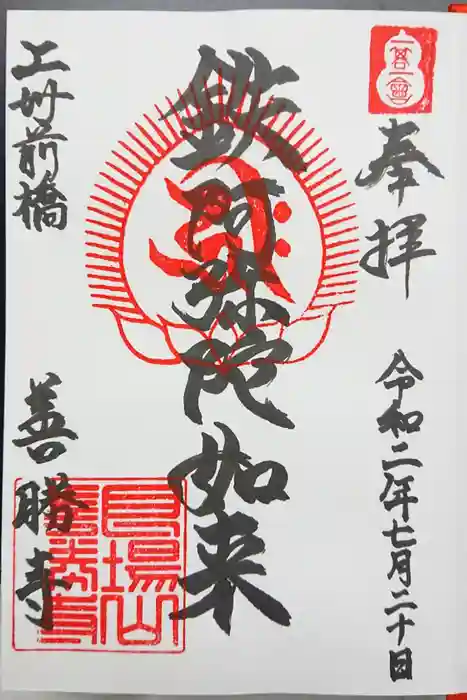 奉拝
令和二年七月二十日
鐵阿弥陀如来
上州前橋
善勝寺
善勝寺